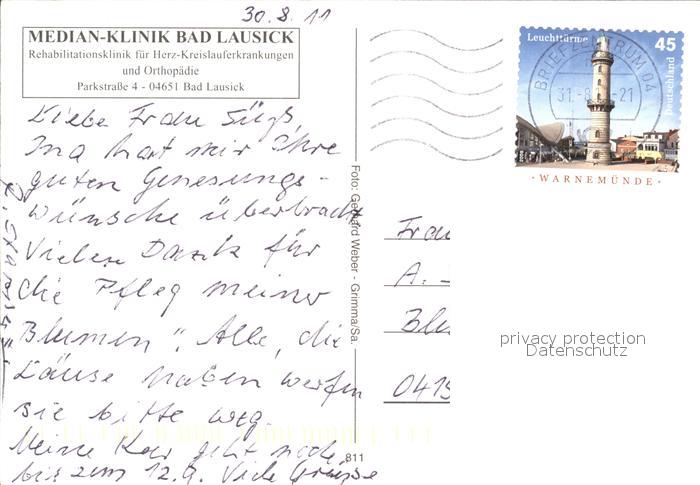 30.8.11
MEDIAN-KLINIK BAD LAUSICK
Rehabilitationsklinik für Herz-Kreislauferkrankungen
und Orthopädie
Parkstraße 4 - 04651 Bad Lausick
Liebe Frau
Ina hat mir Ihre
guten Genesungs-
wünsche überbracht
Vielen Dank für
die Pfleg meiner
Blumen". Alle, die
Läuse haben werfen
sie bitte weg.
Meine Kur geht noch
bis zum 12.9. Viele Grüsse
Foto: Gerhard Weber - Grimma/Sa.
811
Leuchttürme
45
Deutschland
BRIEFZENTRUM 04
31.-8.
-21
· WARNEMÜNDE ·
Frau
A. -
Blu
0415
privacy protection
Datenschutz